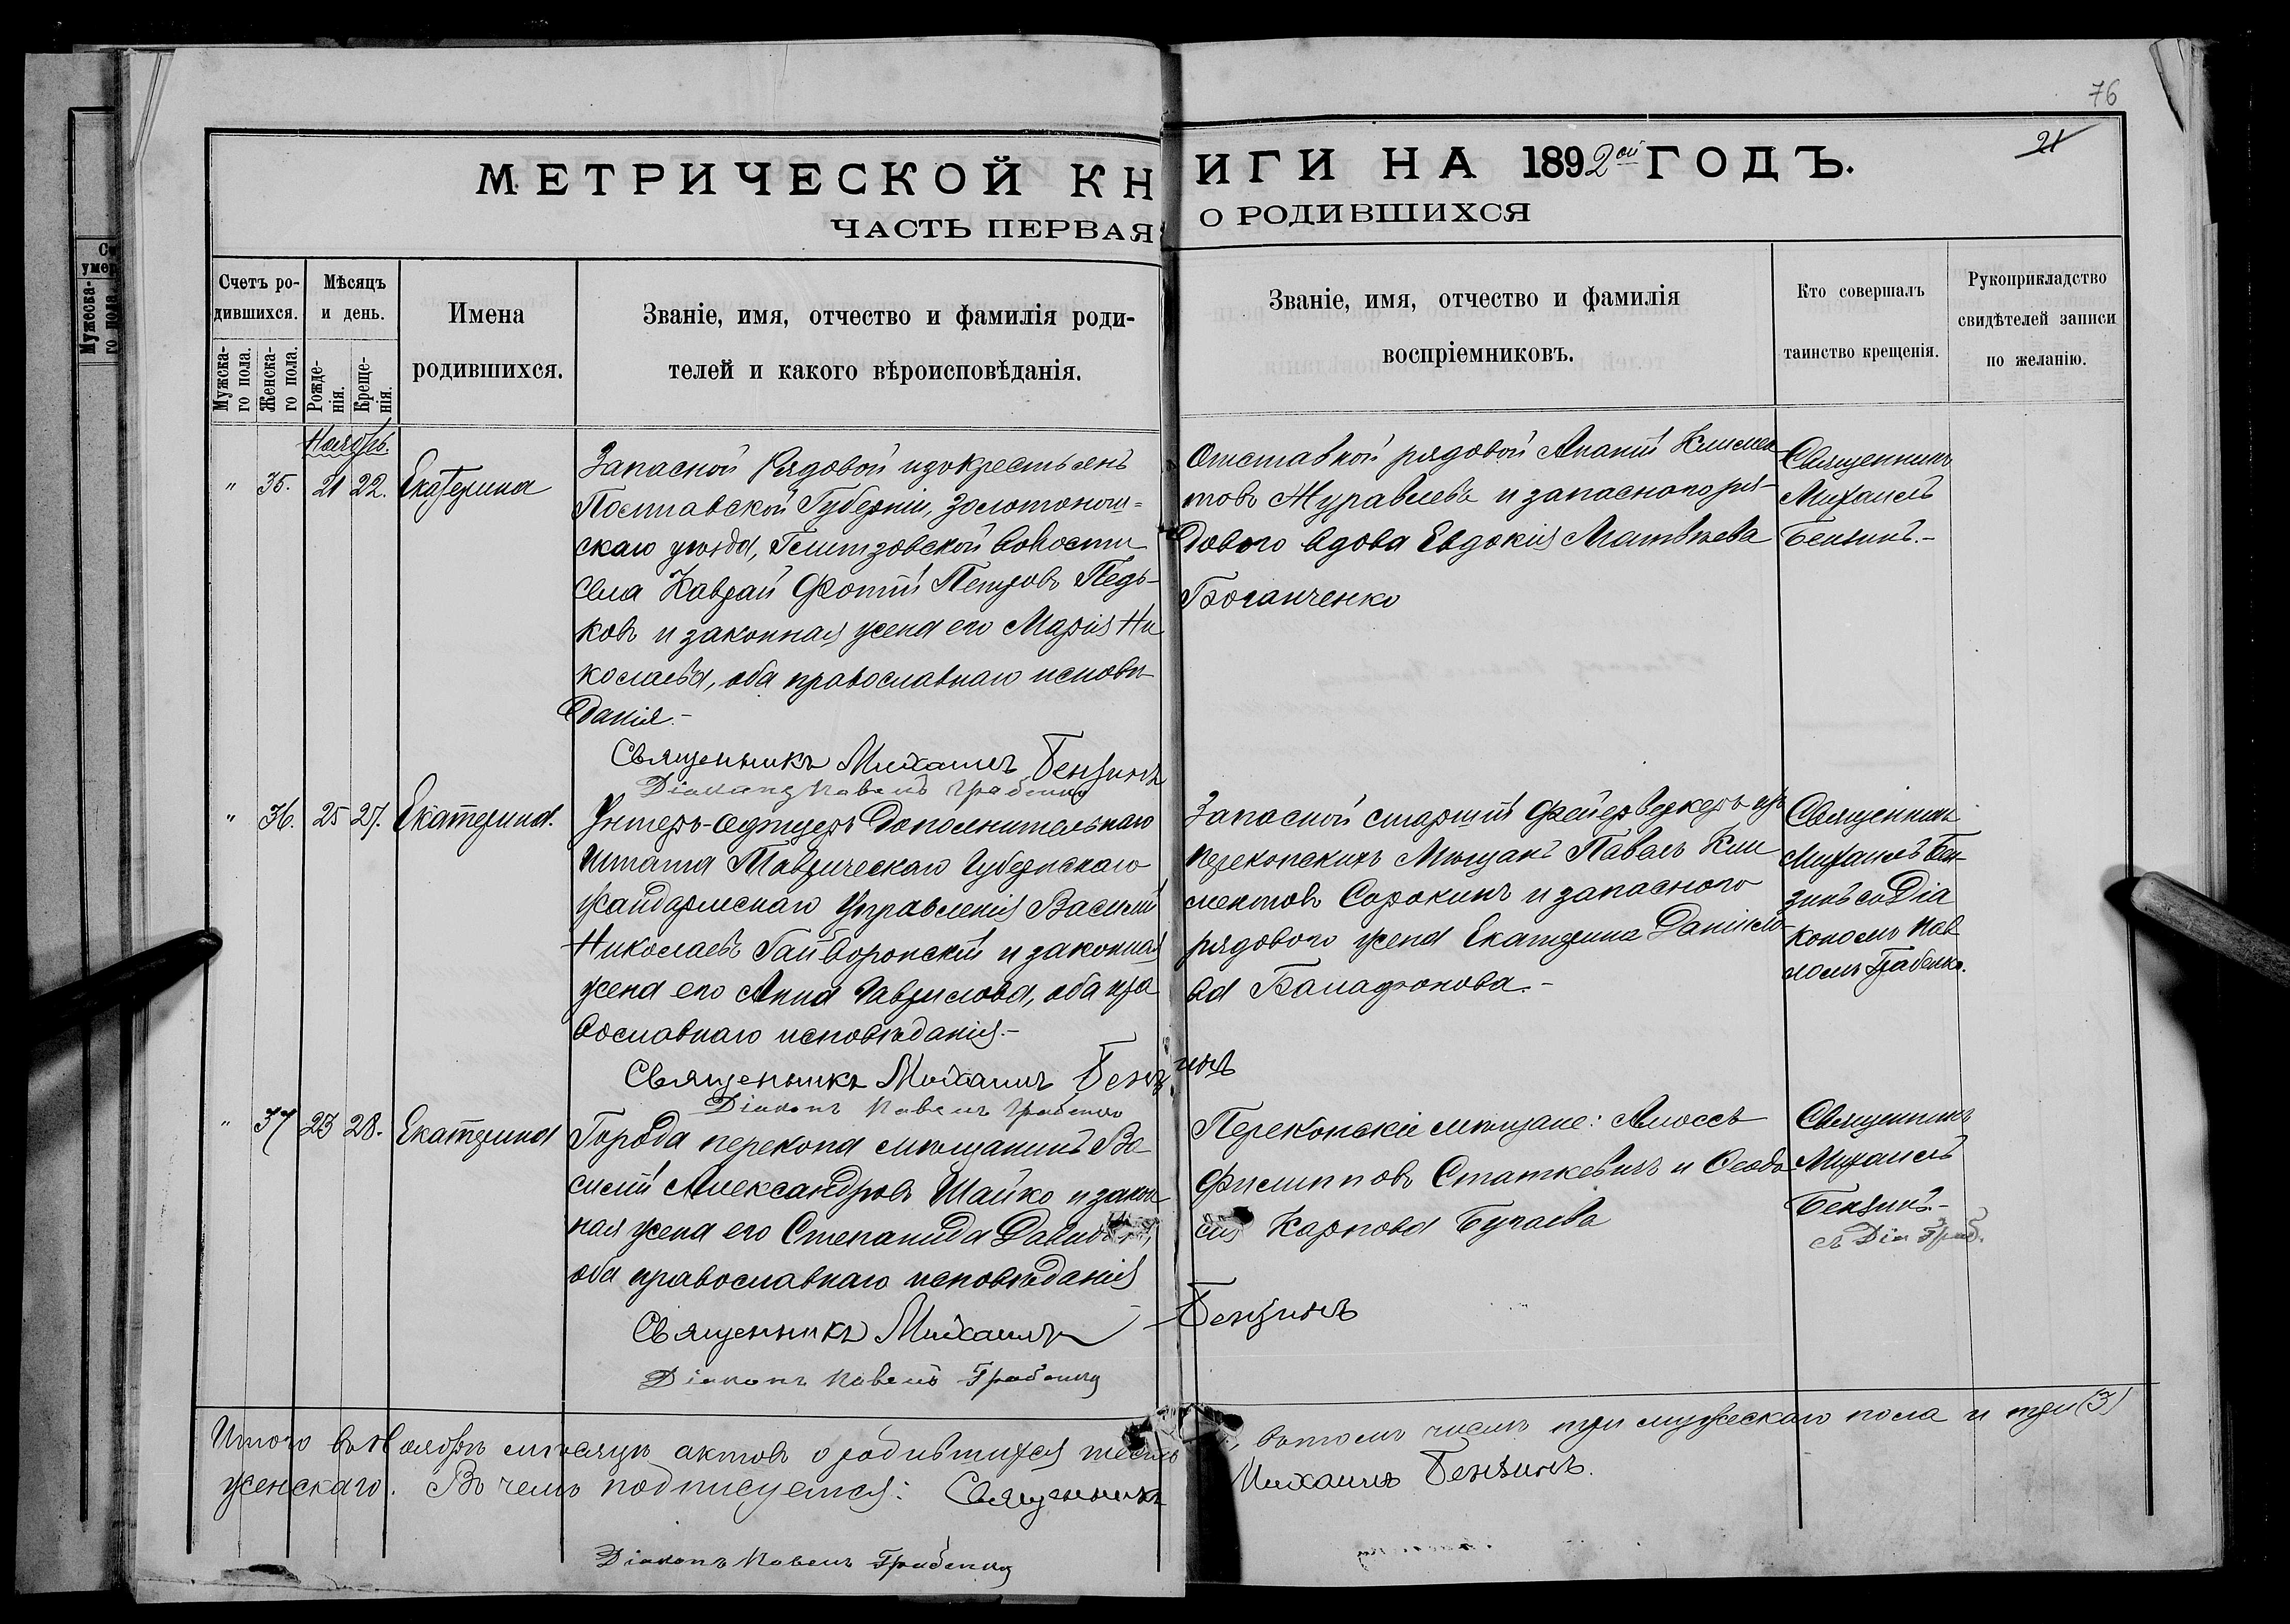 76
21
МЕТРИЧЕСКОЙ КНИГИ НА 1892ой ГОДЪ.
ЧАСТЬ ПЕРВАЯ О РОДИВШИХСЯ
Счетъ родившихся.
Мужскаго пола.
Женскаго пола.
Мѣсяцъ и день.
Рожденія.
Крещенія.
Имена
родившихся.
Званіе, имя, отчество и фамилія роди-
телей и какого вѣроисповѣданія.
Званіе, имя, отчество и фамилія
воспріемниковъ.
Кто совершалъ
таинство крещенія.
Рукоприкладство
свидѣтелей записи
по желанію.
Ноябрь.
" 35. 21 22. Екатерина
Запасной Рядовой изъ крестьянъ
Полтавской Губерніи, Золотонош-
скаго уѣзда, Гельмязовской волости
села Каврай Фотій Петровъ Педь-
ковъ и законная жена его Марія Ни
колаева, оба православнаго исповѣ-
данія.-
Священникъ Михаилъ Бензинъ
Діаконъ Павелъ Грабенко
Отставной рядовой Ананій Климен
товъ Журавлевъ и запаснаго ря-
дового вдова Евдокія Матвѣева
Боганченко
Священникъ
Михаилъ
Бензинъ.-
" 36. 25 27. Екатерина.
Унтеръ-Офицеръ Дополнительнаго
Штата Таврическаго Губернскаго
Жандармскаго Управленія Василій
Николаевъ Гайворонскій и законная
жена его Анна Гаврилова, оба пра
вославнаго исповѣданія.-
Священникъ Михаилъ Бензинъ
Діаконъ Павелъ Грабенко
Запасной старшій Фейерверкеръ изъ
перекопскихъ Мѣщанъ Павелъ Кли
ментовъ Сорокинъ и запаснаго
рядового жена Екатерина Данило-
ва Банафонова.-
Священникъ
Михаилъ Бен-
зинъ со Діа
кономъ Пав
ломъ Грабенко.
" 37 23 28. Екатерина
Города перекопа мѣщанинъ Ва-
силій Александровъ Шайко и закон
ная жена его Степанида Давидова,
оба православнаго исповѣданія
Священникъ Михаилъ Бензинъ
Діаконъ Павелъ Грабенко
Перекопскіе мѣщане: Амосъ
Филипповъ Статкевичъ и Феодо
сія Карпова Бунаева
Священникъ
Михаилъ
Бензинъ.-
съ Діа Граб.
Итого въ Ноябрѣ мѣсяцѣ актовъ о родившихся шесть, въ томъ числѣ три мужескаго пола и три (3)
женскаго. Въ чемъ подписуемся: Священникъ Михаилъ Бензинъ.
Діаконъ Павелъ Грабенко